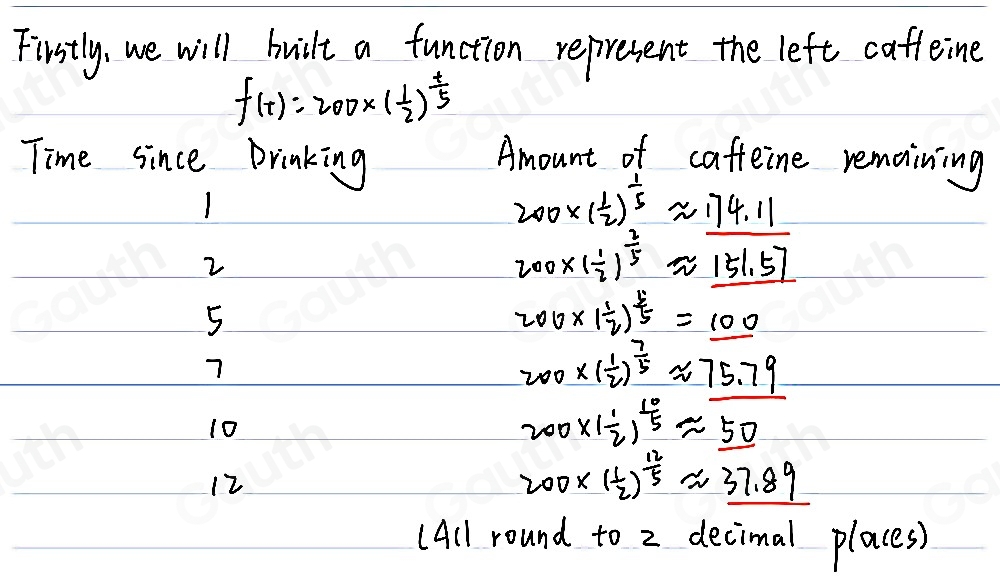 Firstly, we will built a function represent the left caffeine
f(t)=200×(1/2)^(t/5)
Time since Drinking Amount of caffeine remaining
1 200×(1/2)^(1/5) ≈174.11
2 200×(1/2)^(2/5) ≈ 151.57
5 200×(1/2)^(5/5) = 100
7 200×(1/2)^(7/5) ≈75.79
10 200×(1/2)^(10/5) ≈ 50
12 200×(1/2)^(12/5) ≈ 37.89
(All round to 2 decimal places)